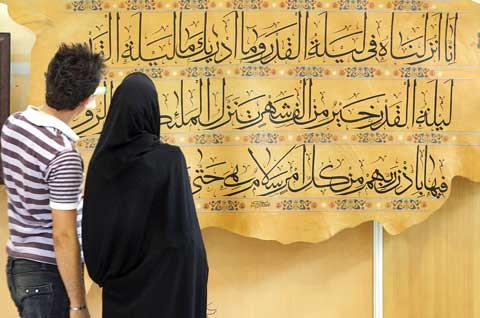 انا انزلناه في ليلة القدر وما ادريك ما ليلة
ليلة القدر خير من الف شهر تنزل
فيها باذن ربهم من كل امر سلام هي حتى